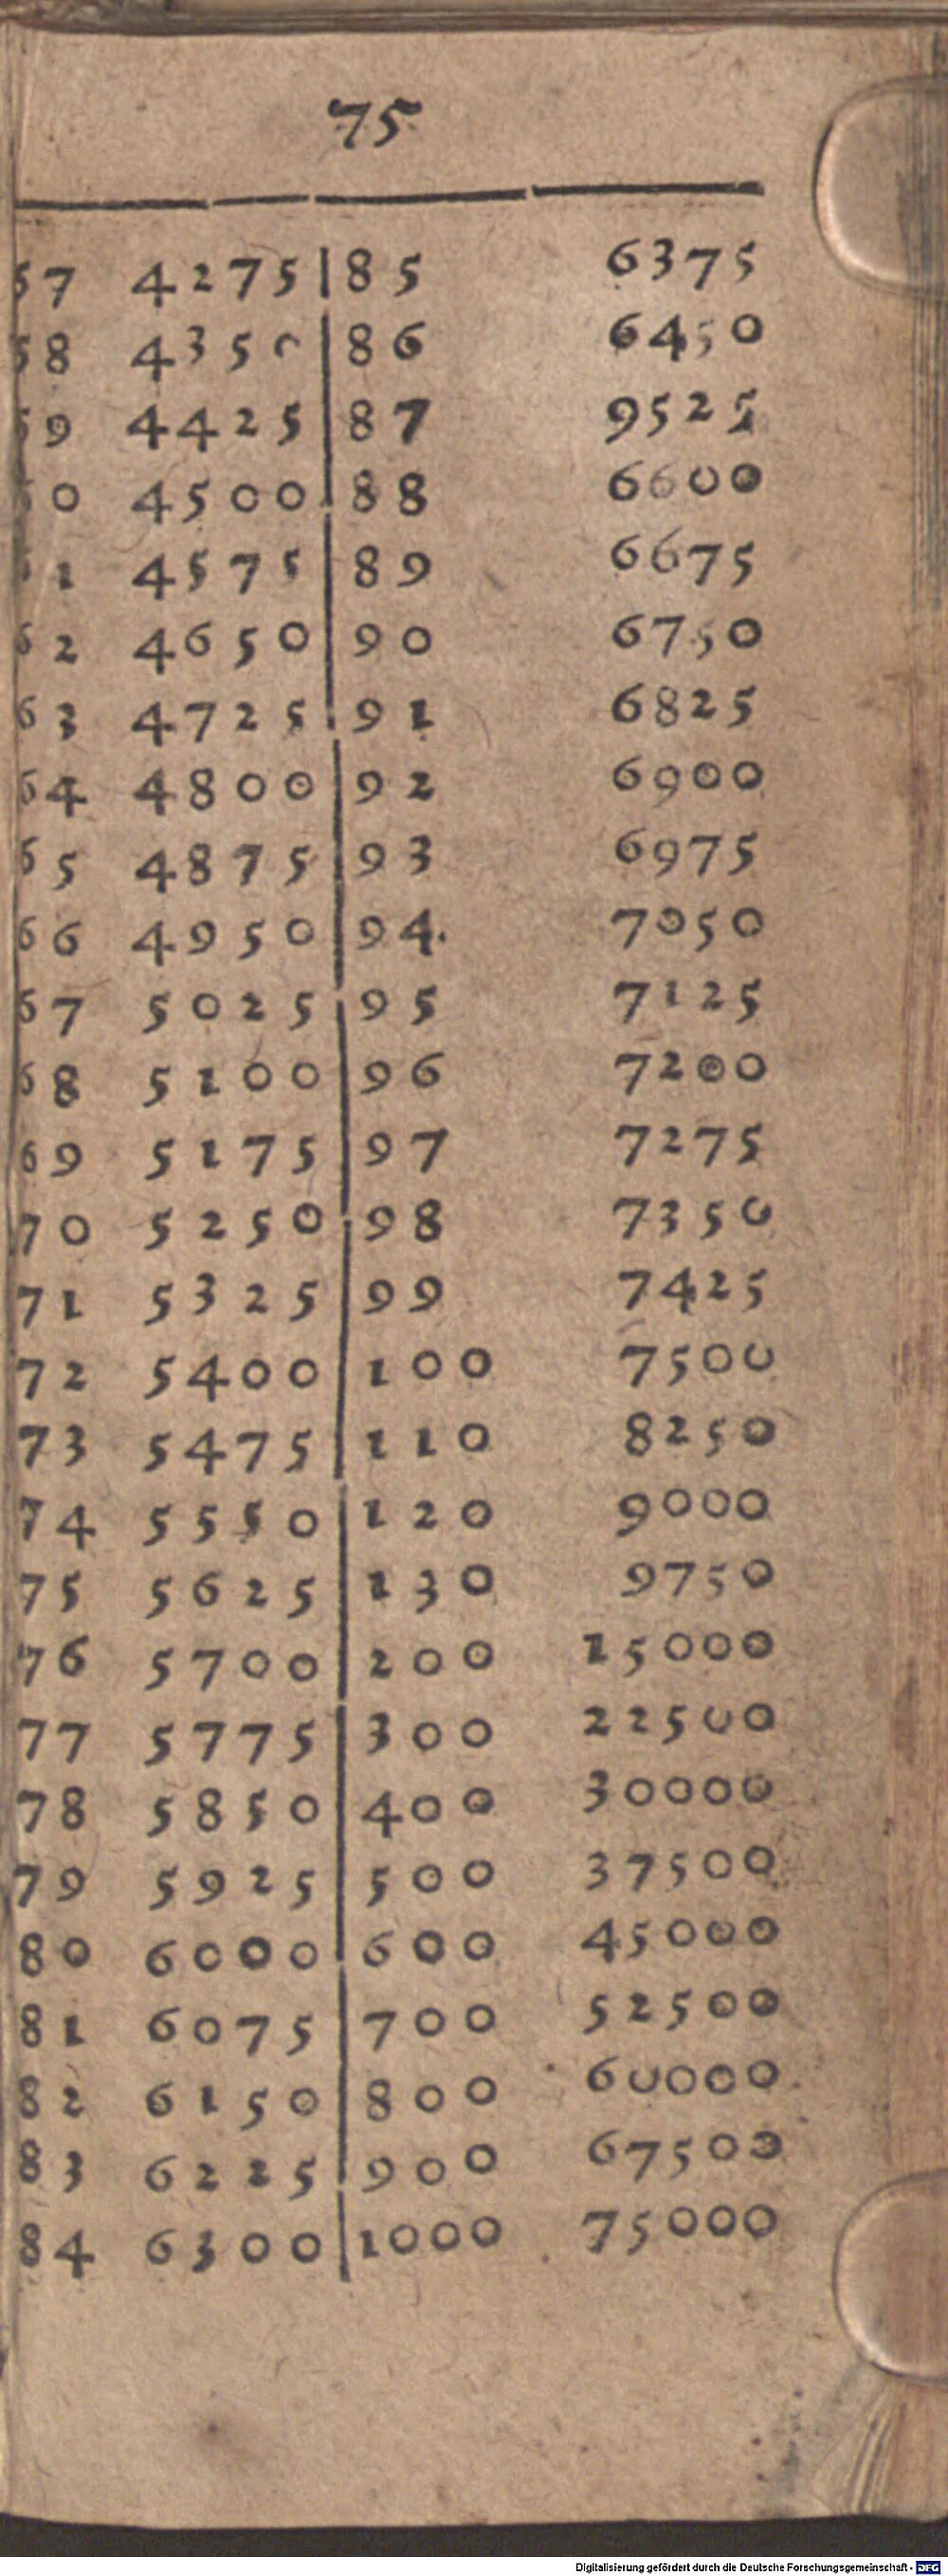 75
57 4275 85 6375
58 4350 86 6450
59 4425 87 9525
60 4500 88 6600
61 4575 89 6675
62 4650 90 6750
63 4725 91 6825
64 4800 92 6900
65 4875 93 6975
66 4950 94. 7050
67 5025 95 7125
68 5100 96 7200
69 5175 97 7275
70 5250 98 7350
71 5325 99 7425
72 5400 100 7500
73 5475 110 8250
74 5550 120 9000
75 5625 130 9750
76 5700 200 15000
77 5775 300 22500
78 5850 400 30000
79 5925 500 37500
80 6000 600 45000
81 6075 700 52500
82 6150 800 60000
83 6225 900 67500
84 6300 1000 75000
Digitalisierung gefördert durch die Deutsche Forschungsgemeinschaft - DFG